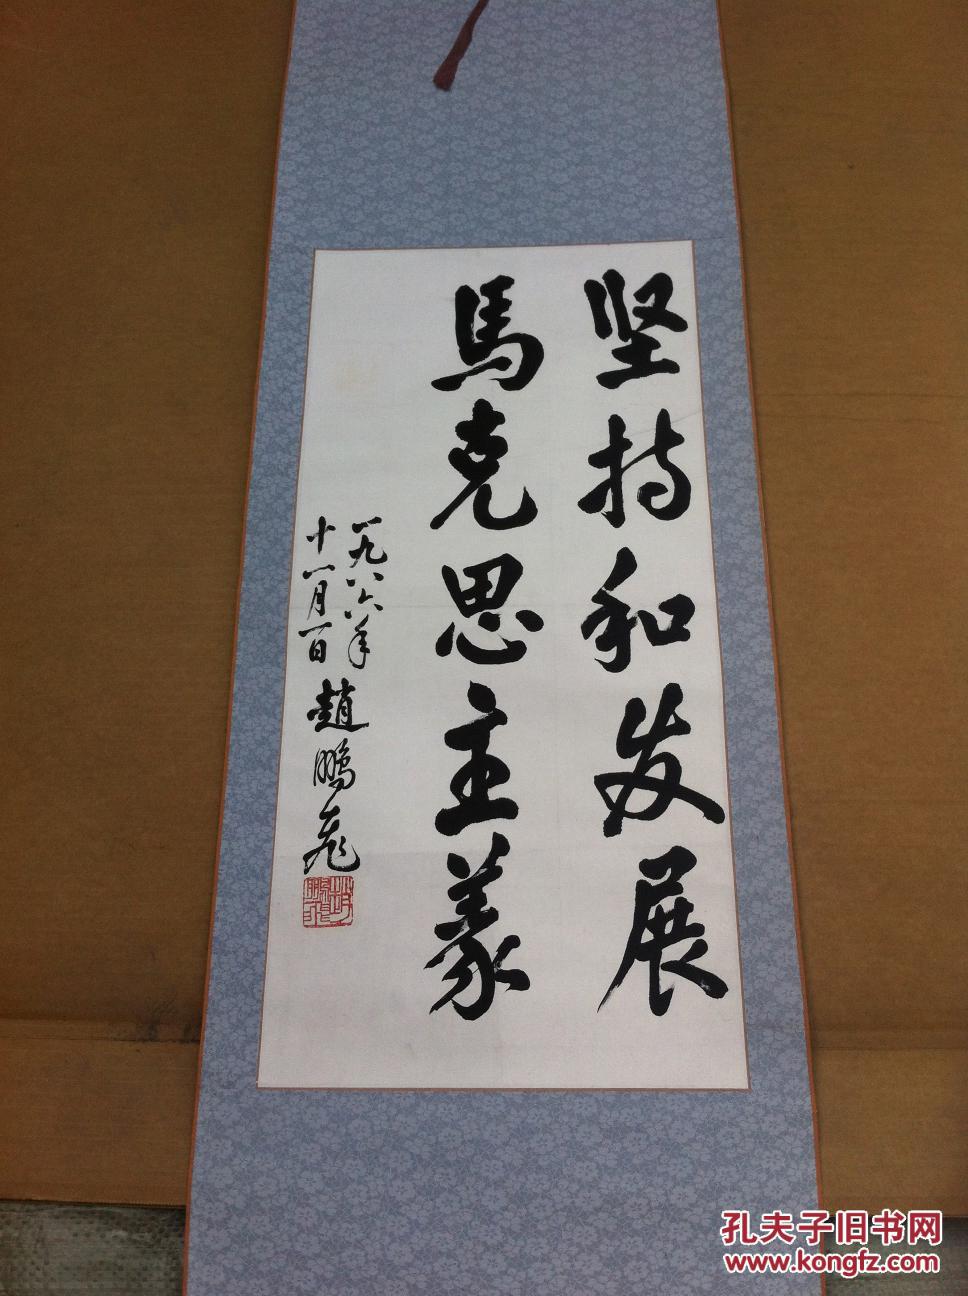 坚持和发展
馬克思主义
一九八六年
十一月一日 趙鹏飞
趙鹏飞
孔夫子旧书网
www.kongfz.com